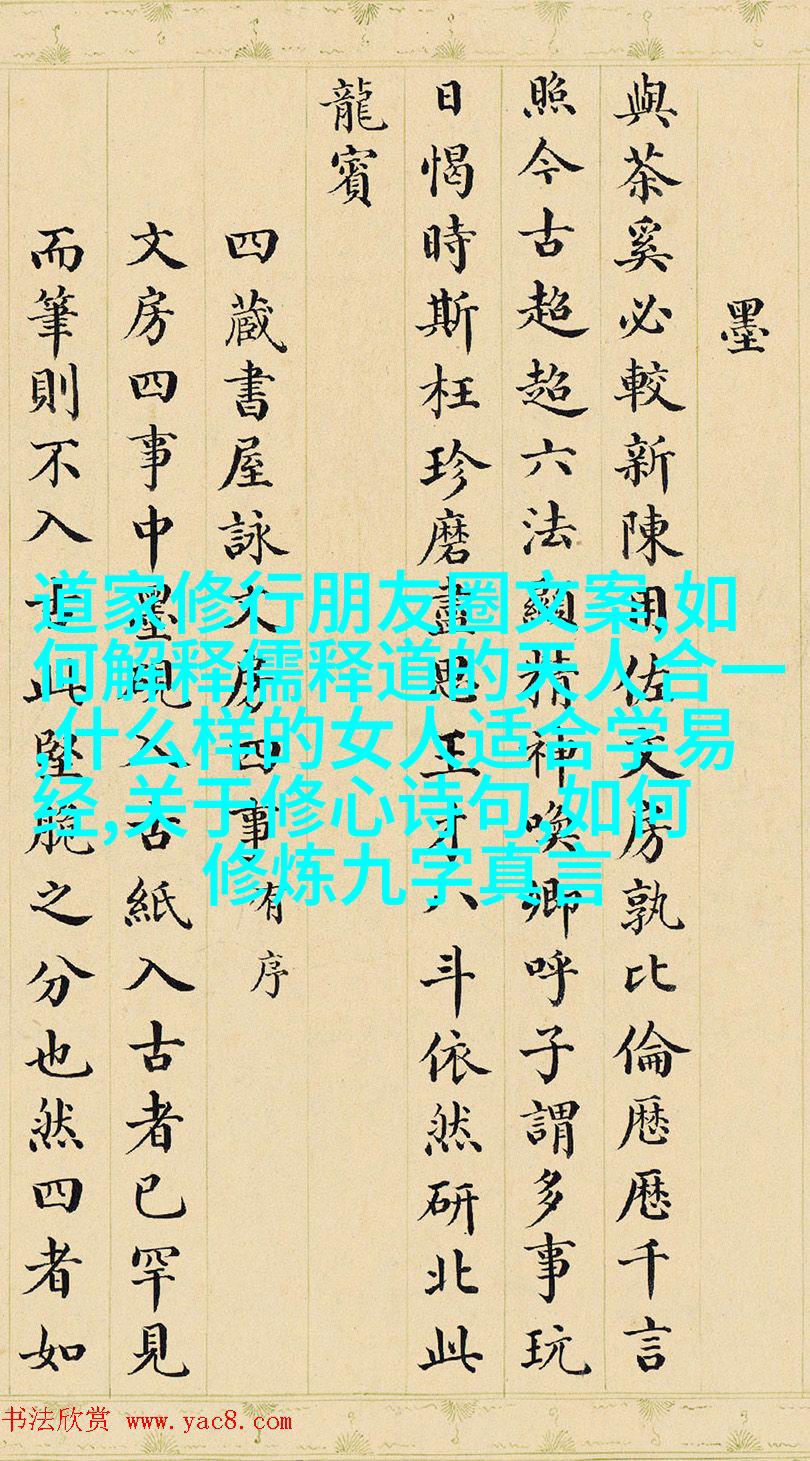 墨
與茶奚必較新陳用佐文房孰比倫厯厯千言
照今古超超六法顯精神喚卿呼子謂多事玩
日愒時斯枉珍磨盡思王才八斗依然研北此
龍賓
四蔵書屋詠文房四事有序
文房四事中墨硯入古紙入古者已罕見
而筆則不入古此堅脆之分也然四者如
道家修行朋友圈文案,如
何解释儒释道的天人合一
,什么样的女人适合学易
经,关于修心诗句,如何
修炼九字真言
书法欣赏 www.yac8.com